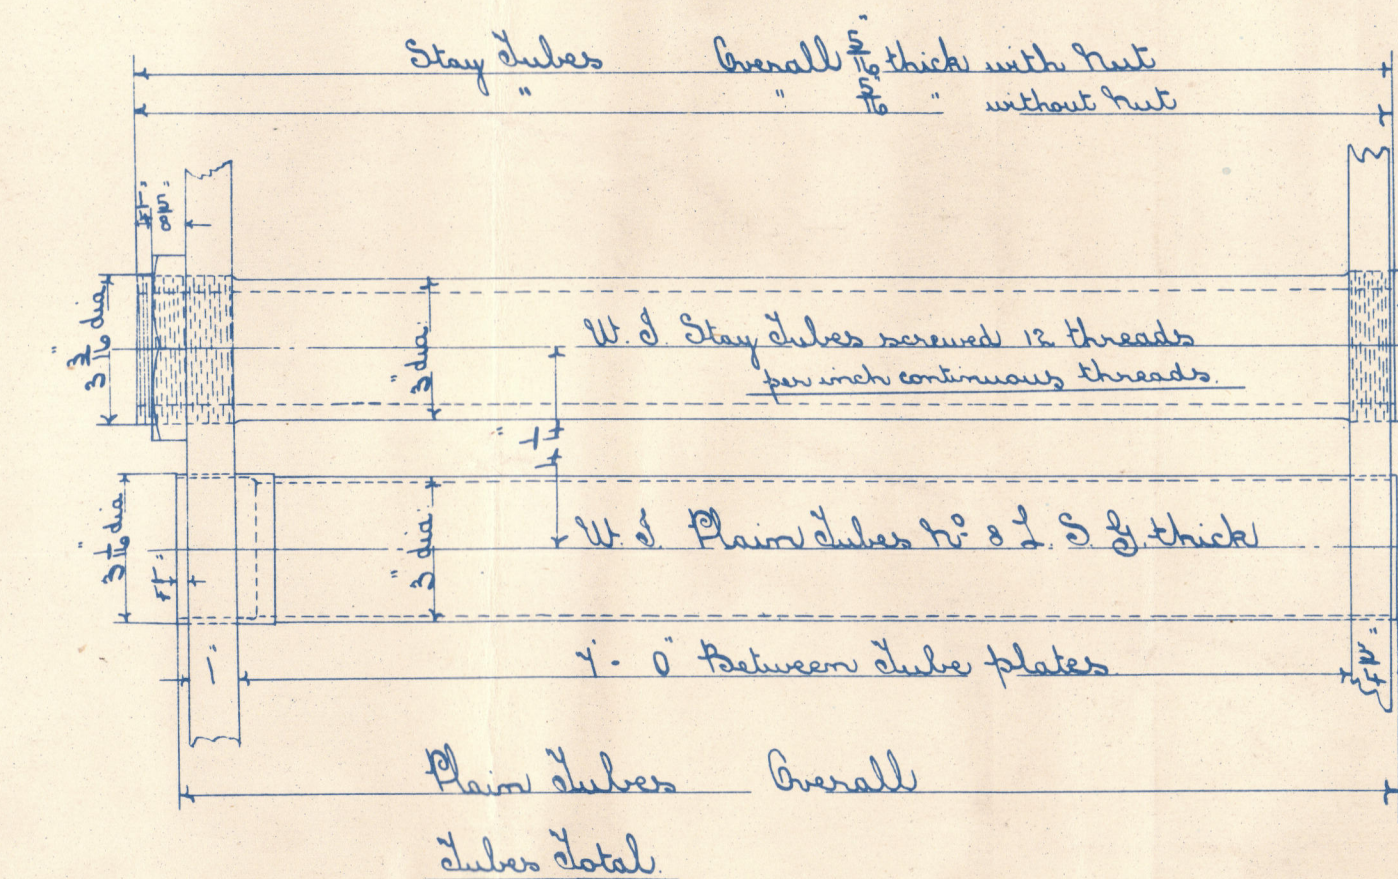 Stay Tubes Overall 5/16" thick with Nut
" " 5/16 " without Nut
1/4"
5/8"
3 3/16" dia.
3" dia.
W. I. Stay Tubes screwed 12 threads
per inch continuous threads.
3 1/16" dia
1/4"
3" dia.
W. I. Plain Tubes No. 8 L. S. G. thick
1"
7'- 0" Between Tube plates.
Plain Tubes Overall
Tubes Total.